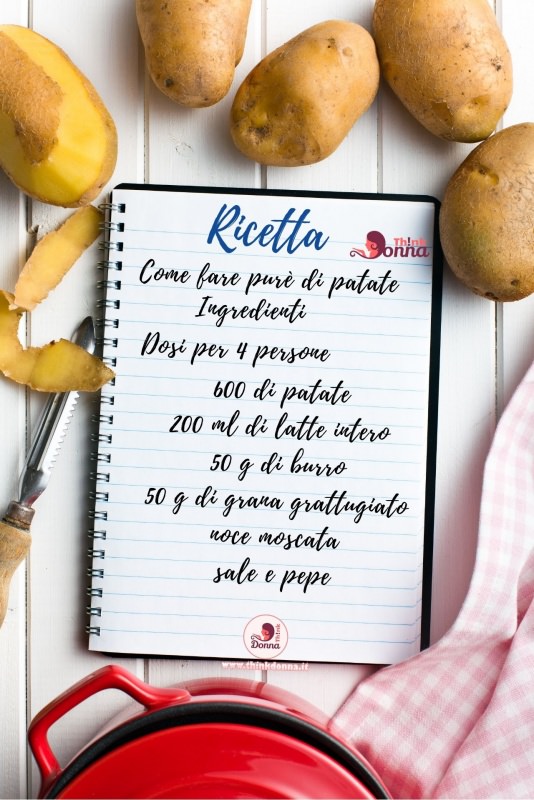 Ricetta
Think
Donna
Come fare purè di patate
Ingredienti
Dosi per 4 persone
600 di patate
200 ml di latte intero
50 g di burro
50 g di grana grattugiato
noce moscata
sale e pepe
Think
Donna
www.thinkdonna.it